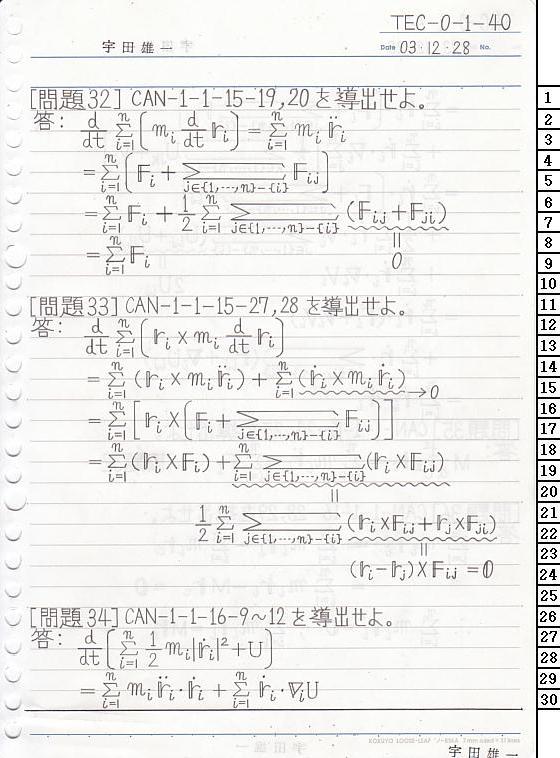 TEC-0-1-40
宇田雄一
Date 03・12・28 No.
[問題32] CAN-1-1-15-19,20を導出せよ。
答: d/dt Σ_{i=1}^{n} (m_i d/dt 𝕣_i) = Σ_{i=1}^{n} m_i 𝕣̈_i
= Σ_{i=1}^{n} [𝔽_i + Σ_{j∈{1,…,n}-{i}} 𝔽_{ij}]
= Σ_{i=1}^{n} 𝔽_i + 1/2 Σ_{i=1}^{n} Σ_{j∈{1,…,n}-{i}} (𝔽_{ij} + 𝔽_{ji})
= Σ_{i=1}^{n} 𝔽_i
||
0
[問題33] CAN-1-1-15-27,28を導出せよ。
答: d/dt Σ_{i=1}^{n} (𝕣_i × m_i d/dt 𝕣_i)
= Σ_{i=1}^{n} (𝕣_i × m_i 𝕣̈_i) + Σ_{i=1}^{n} (𝕣̇_i × m_i 𝕣̇_i) → 0
= Σ_{i=1}^{n} [𝕣_i × (𝔽_i + Σ_{j∈{1,…,n}-{i}} 𝔽_{ij})]
= Σ_{i=1}^{n} (𝕣_i × 𝔽_i) + Σ_{i=1}^{n} Σ_{j∈{1,…,n}-{i}} (𝕣_i × 𝔽_{ij})
||
1/2 Σ_{i=1}^{n} Σ_{j∈{1,…,n}-{i}} (𝕣_i × 𝔽_{ij} + 𝕣_j × 𝔽_{ji})
||
(𝕣_i - 𝕣_j) × 𝔽_{ij} = 0
[問題34] CAN-1-1-16-9~12を導出せよ。
答: d/dt (Σ_{i=1}^{n} 1/2 m_i |𝕣̇_i|² + U)
= Σ_{i=1}^{n} m_i 𝕣̈_i・𝕣̇_i + Σ_{i=1}^{n} 𝕣̇_i・∇_i U
KOKUYO LOOSE-LEAF
宇田雄一
1
2
3
4
5
6
7
8
9
10
11
12
13
14
15
16
17
18
19
20
21
22
23
24
25
26
27
28
29
30